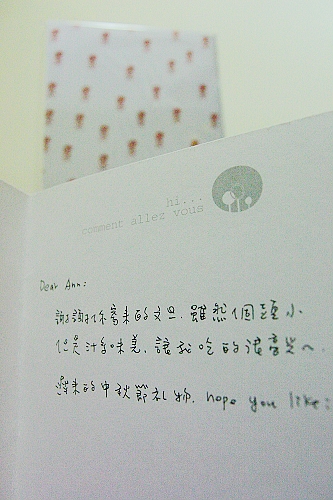 hi...
comment allez vous
Dear Ann:
謝謝你寄來的文旦．雖然個頭小．
但是汁多味美．讓我吃的很高興～．
遲來的中秋節礼物．hope you like: